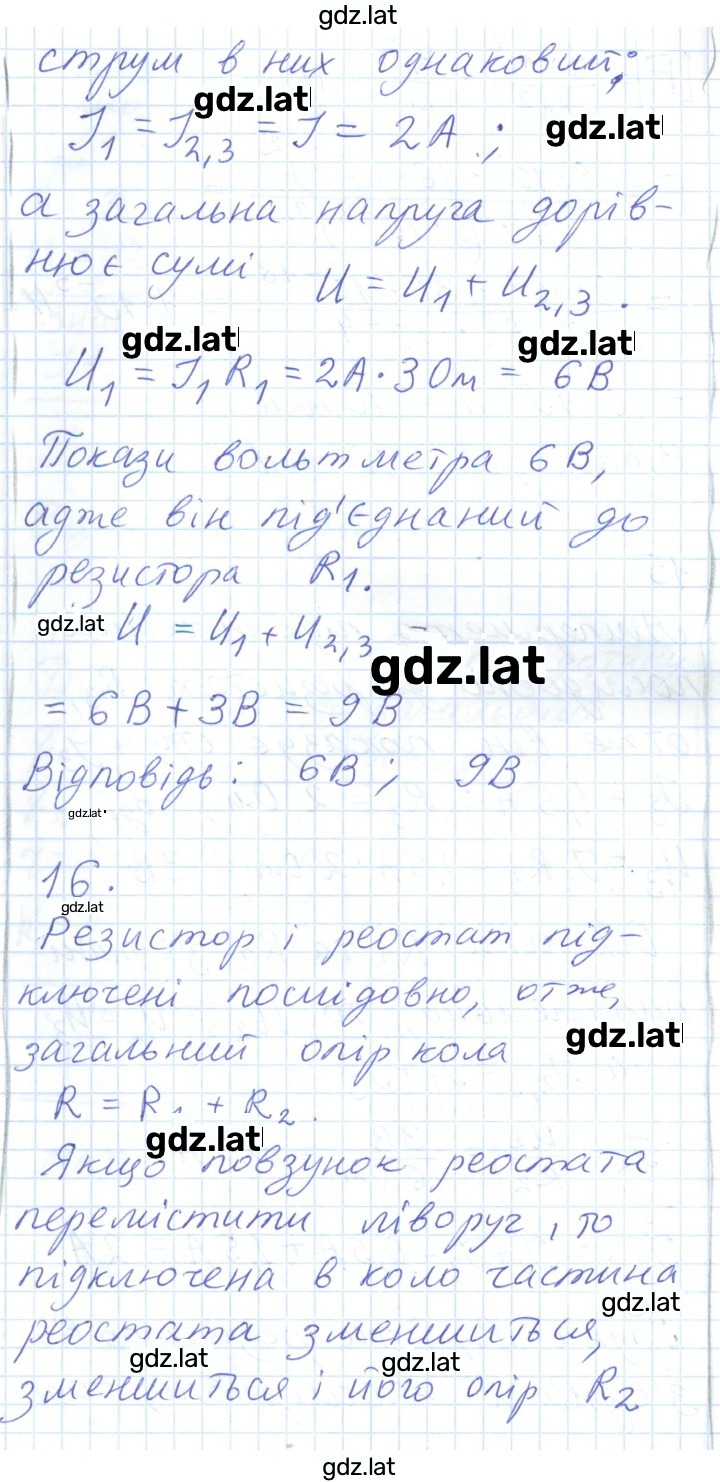 gdz.lat
струм в них однаковий;
gdz.lat
I₁ = I₂,₃ = I = 2A ; gdz.lat
а загальна напруга дорів-
нює сумі U = U₁ + U₂,₃ .
gdz.lat gdz.lat
U₁ = I₁ R₁ = 2A · 3 Ом = 6 В
Покази вольтметра 6 В,
адже він під'єднаний до
резистора R₁.
gdz.lat U = U₁ + U₂,₃
gdz.lat
= 6 В + 3 В = 9 В
Відповідь: 6 В ; 9 В
gdz.lat
16.
gdz.lat
Резистор і реостат під-
ключені послідовно, отже,
gdz.lat
загальний опір кола
R = R₁ + R₂.
gdz.lat
Якщо повзунок реостата
перемістити ліворуч, то
підключена в коло частина
gdz.lat
реостата зменшиться,
gdz.lat gdz.lat
зменшиться і його опір R₂
gdz.lat